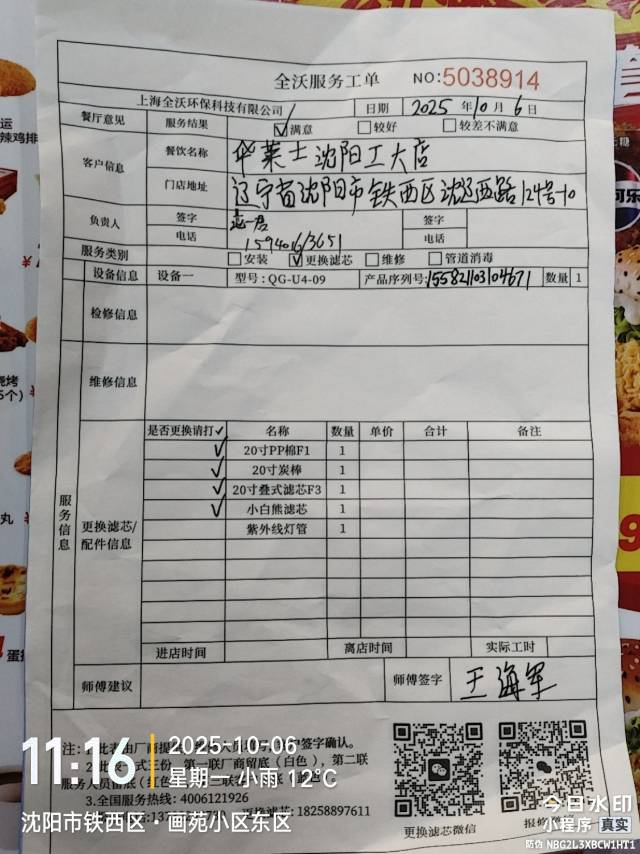 全沃服务工单 NO:5038914
上海全沃环保科技有限公司 日期 2025 年 10 月 6 日
餐厅意见 服务结果 ☑满意 ☐较好 ☐较差不满意
客户信息 餐饮名称 华莱士沈阳工大店
门店地址 辽宁省沈阳市铁西区沈辽西路124号-10
负责人 签字 签字
电话 15940163651 电话
服务类别 ☐安装 ☑更换滤芯 ☐维修 ☐管道消毒
设备信息 设备一 型号:QG-U4-09 产品序列号:155821103104671 数量 1
检修信息
维修信息
服务信息
更换滤芯/配件信息
是否更换请打✓ 名称 数量 单价 合计 备注
✓ 20寸PP棉F1 1
✓ 20寸炭棒 1
✓ 20寸叠式滤芯F3 1
✓ 小白熊滤芯 1
紫外线灯管 1
进店时间 离店时间 实际工时
师傅建议 师傅签字 王海军
签字确认。
第一联厂商留底(白色)、第二联
3.全国服务热线:4006121926
更换滤芯:18258897611
更换滤芯微信
11:16
2025-10-06
星期一 小雨 12℃
沈阳市铁西区·画苑小区东区
今日水印
小程序 真实
防伪 NBG2L3XBCW1HT1